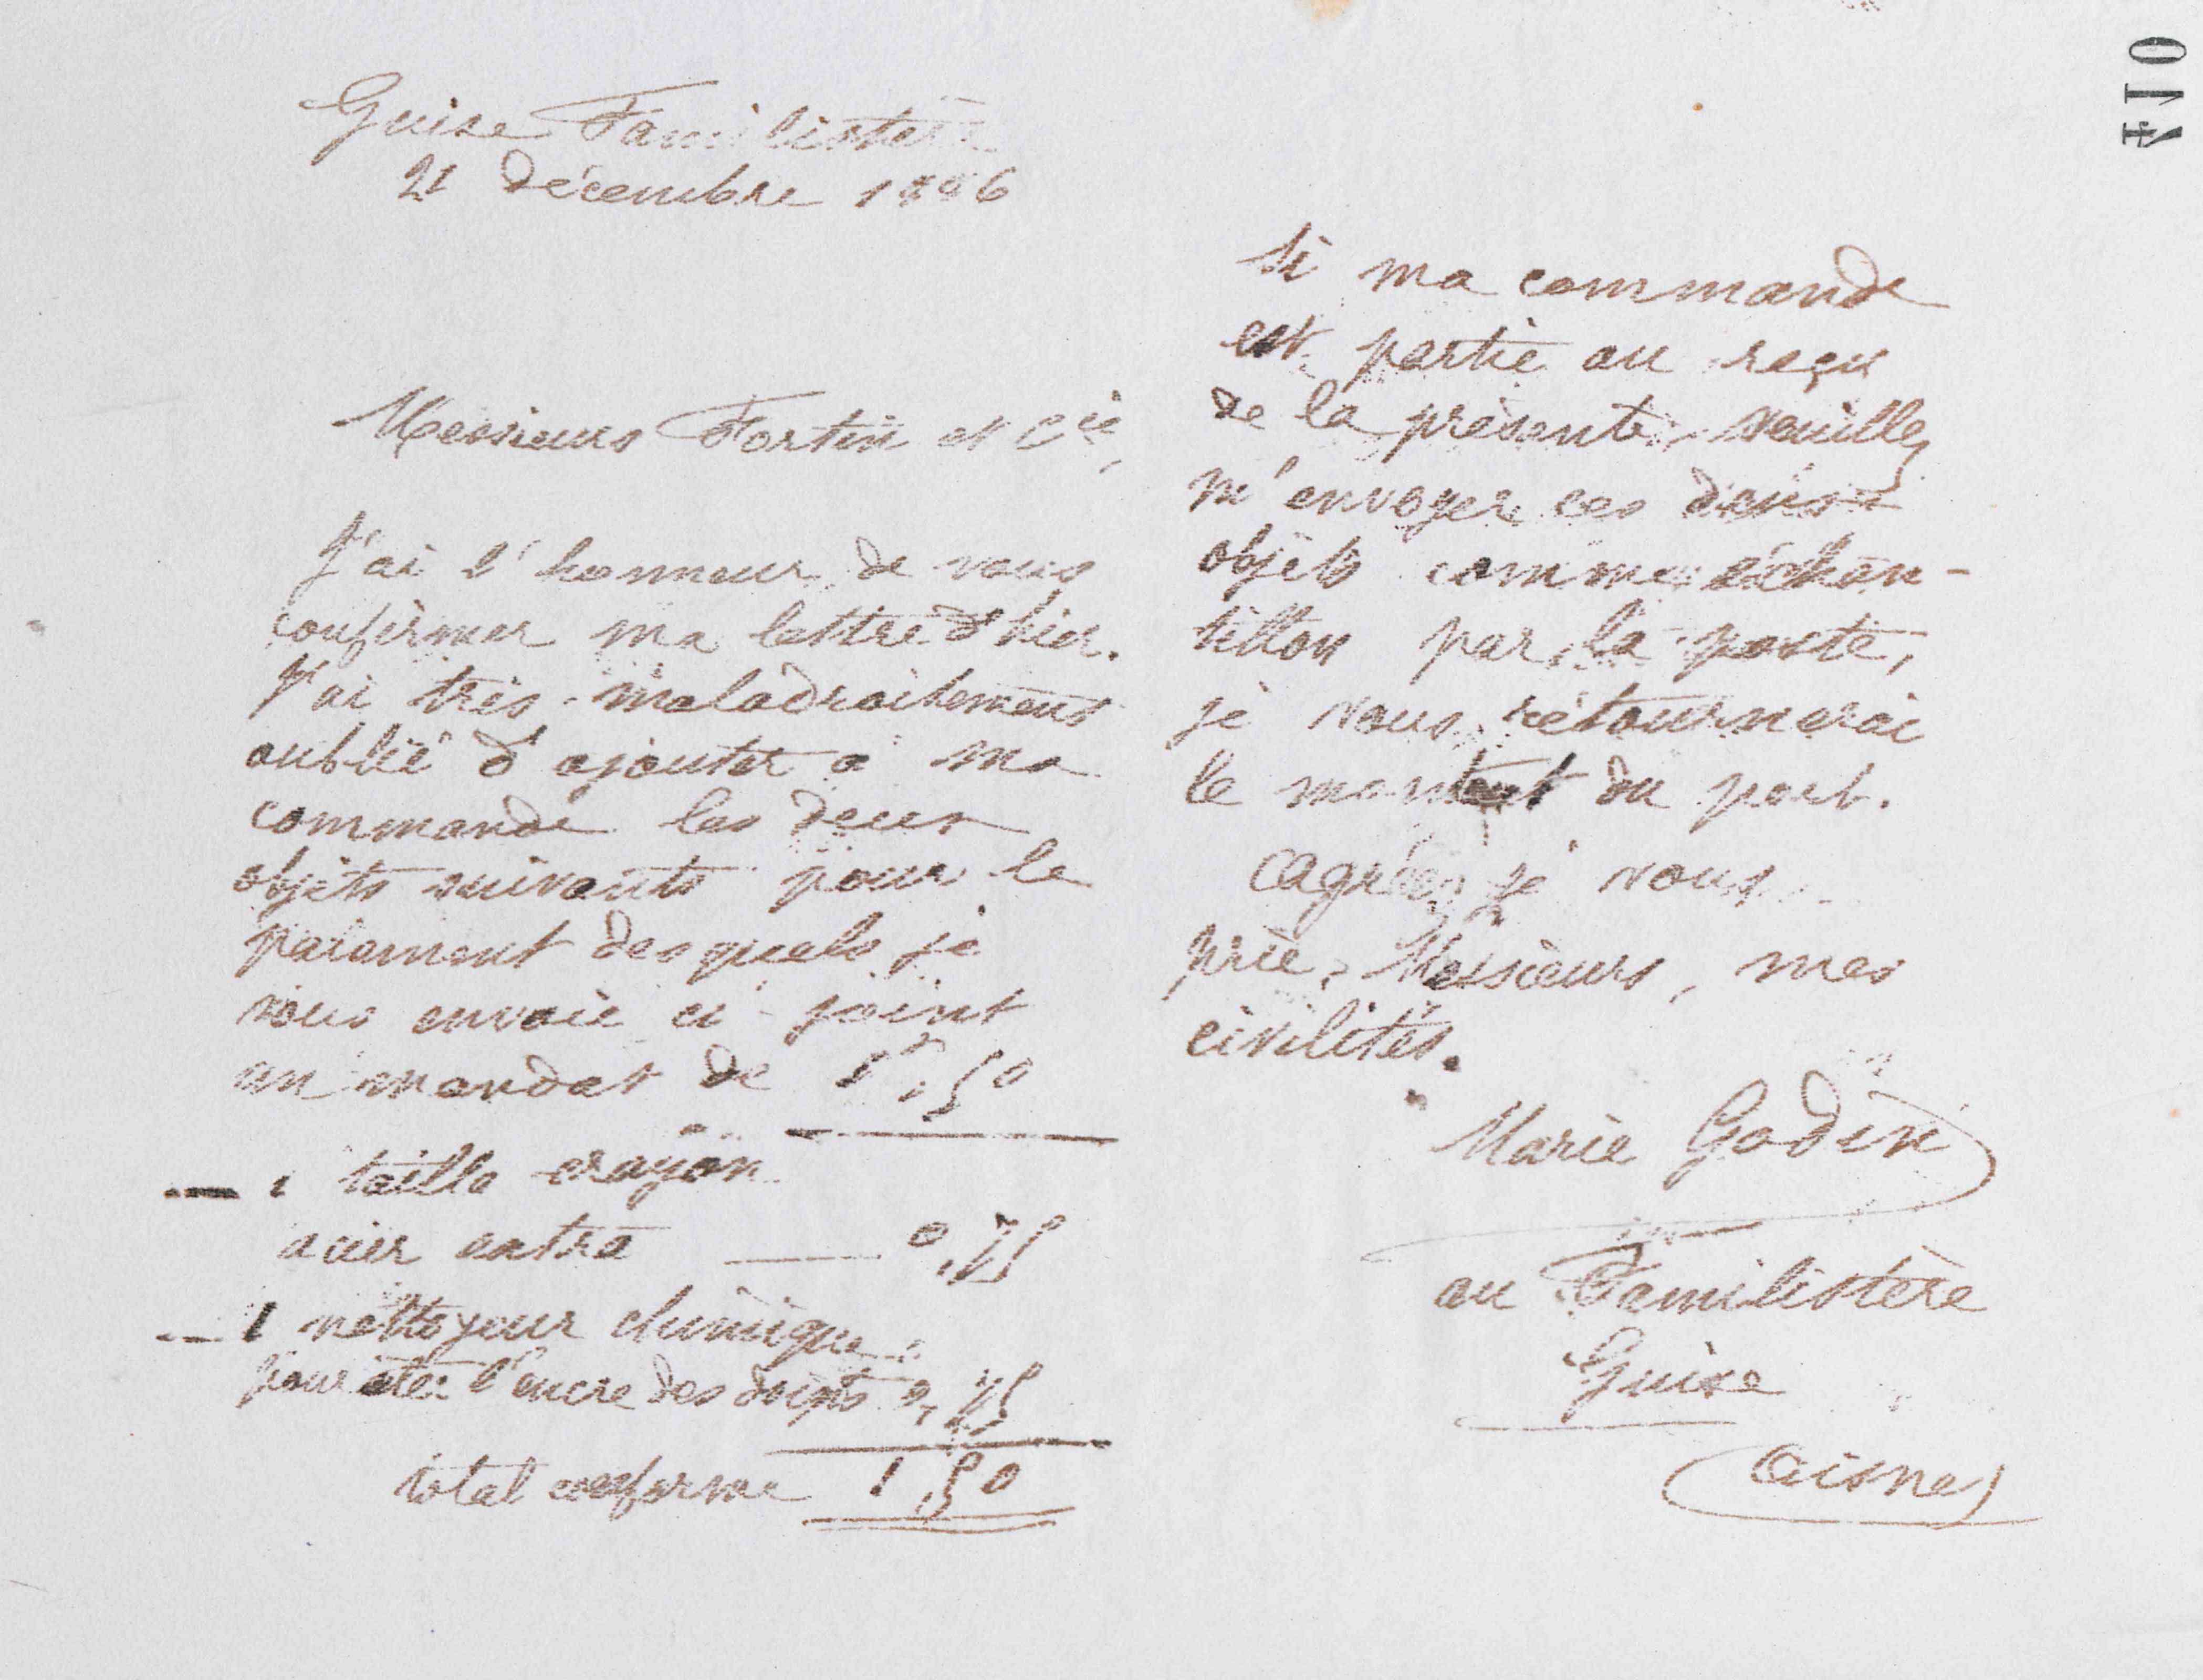 Guise Familistère
21 décembre 1886
Messieurs Fortin et Cie,
J'ai l'honneur de vous
confirmer ma lettre d'hier.
J'ai très maladroitement
oublié d'ajouter à ma
commande les deux
objets suivants pour le
paiement desquels je
vous envoie ci-joint
un mandat de 1f,50
1 taille crayon
acier extra — 0,75
1 nettoyeur chimique
pour ôter l'encre des doigts 0,75
total conforme 1,50
Si ma commande
est partie au reçu
de la présente, veuillez
m'envoyer ces deux
objets comme échan-
tillon par la poste,
je vous retournerai
le montant du port.
Agréez, je vous
prie, Messieurs, mes
civilités.
Marie Godin
au Familistère
Guise
Aisne